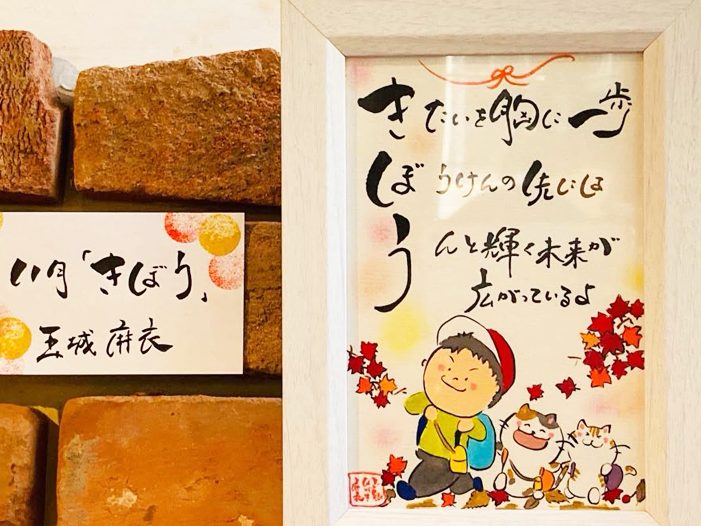 11月「きぼう」
玉城 麻衣
きたいを胸に一歩
ぼうけんの先には
うんと輝く未来が
広がっているよ